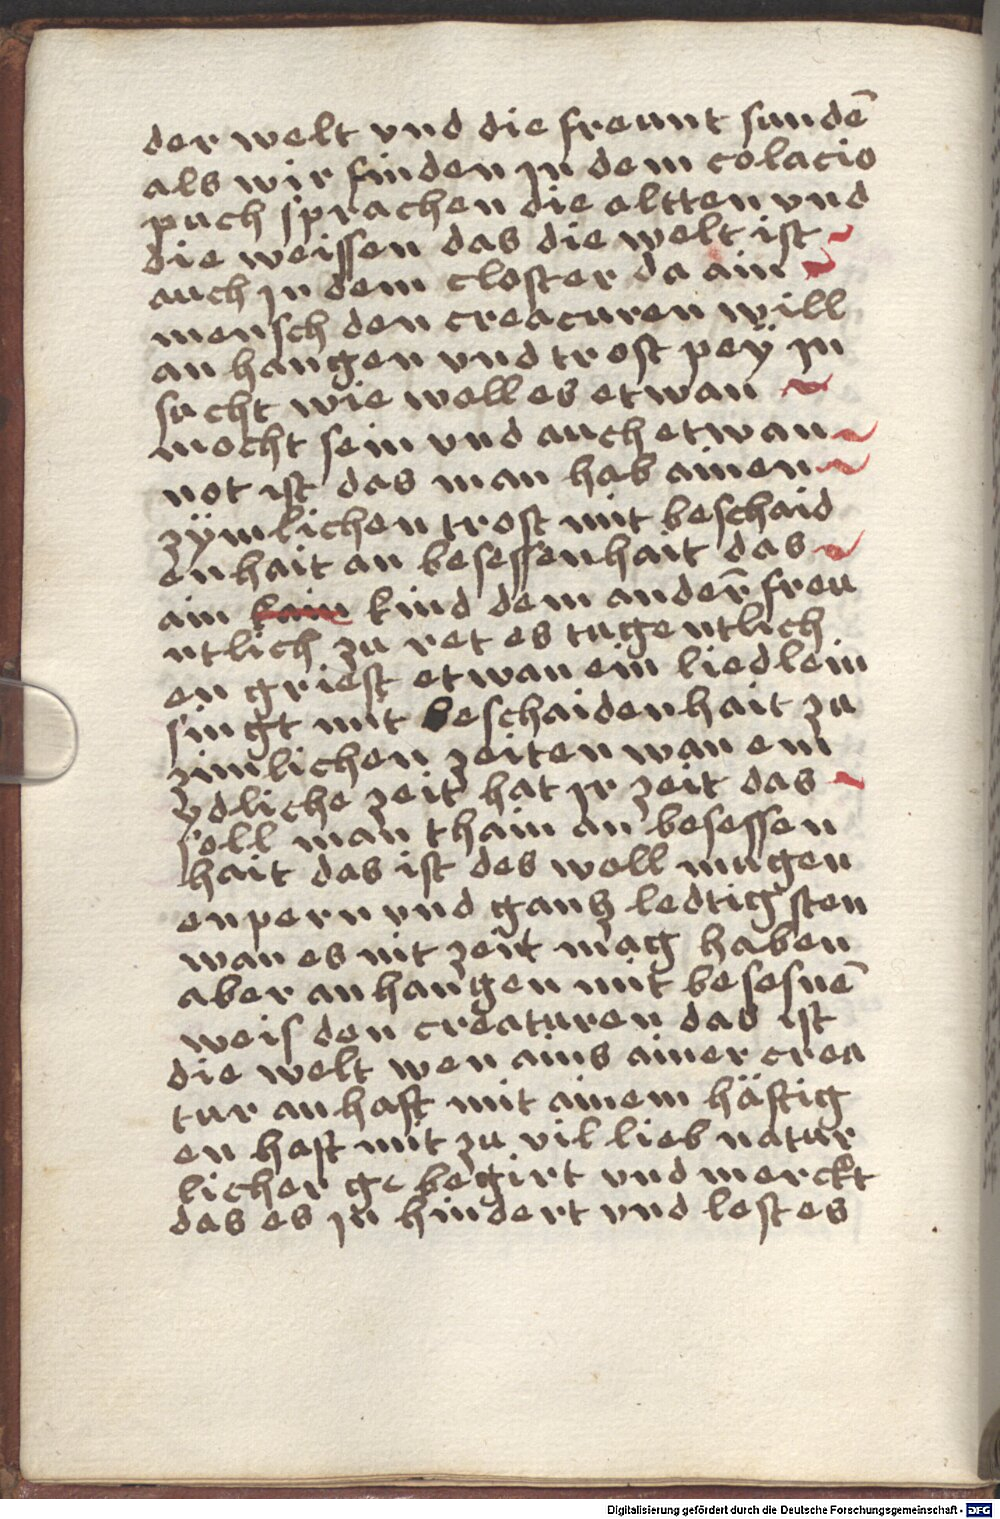 der welt vnd die freunt sunden̄
als wir finden jn dem colacio
puch sprachen die eltten vnd
die weissen das die welt ist
auch jn dem closter da ain
mensch den creacuren will
an hangen vnd trost peÿ jn
sucht wie woll es etwan
mocht sein vnd auch etwan
not ist das man hab ainen
zÿmlichen trost mit beschaid
enhait an besessenhait das
ain kain kind dem ander̄ freu
ntlich zu ret es tugentlich
en griest etwan ein liedlein
singt mit beschaidenhait zu
zimlichen zeiten wan ein
ÿdliche zeit hat jr zeit das
soll man thain an besessen
hait das ist des woll mugen
enpern vnd gancz ledtig sten
wan es nit zeit mag haben
aber an hangen mit besesnē
weis den creaturen das ist
die welt wen ains ainer crea
tur anhaft mit ainem häftig
en haft mit zu vil lieb natur
licher ge begirt vnd merckt
das es jn hindert vnd lest es
Digitalisierung gefördert durch die Deutsche Forschungsgemeinschaft - DFG